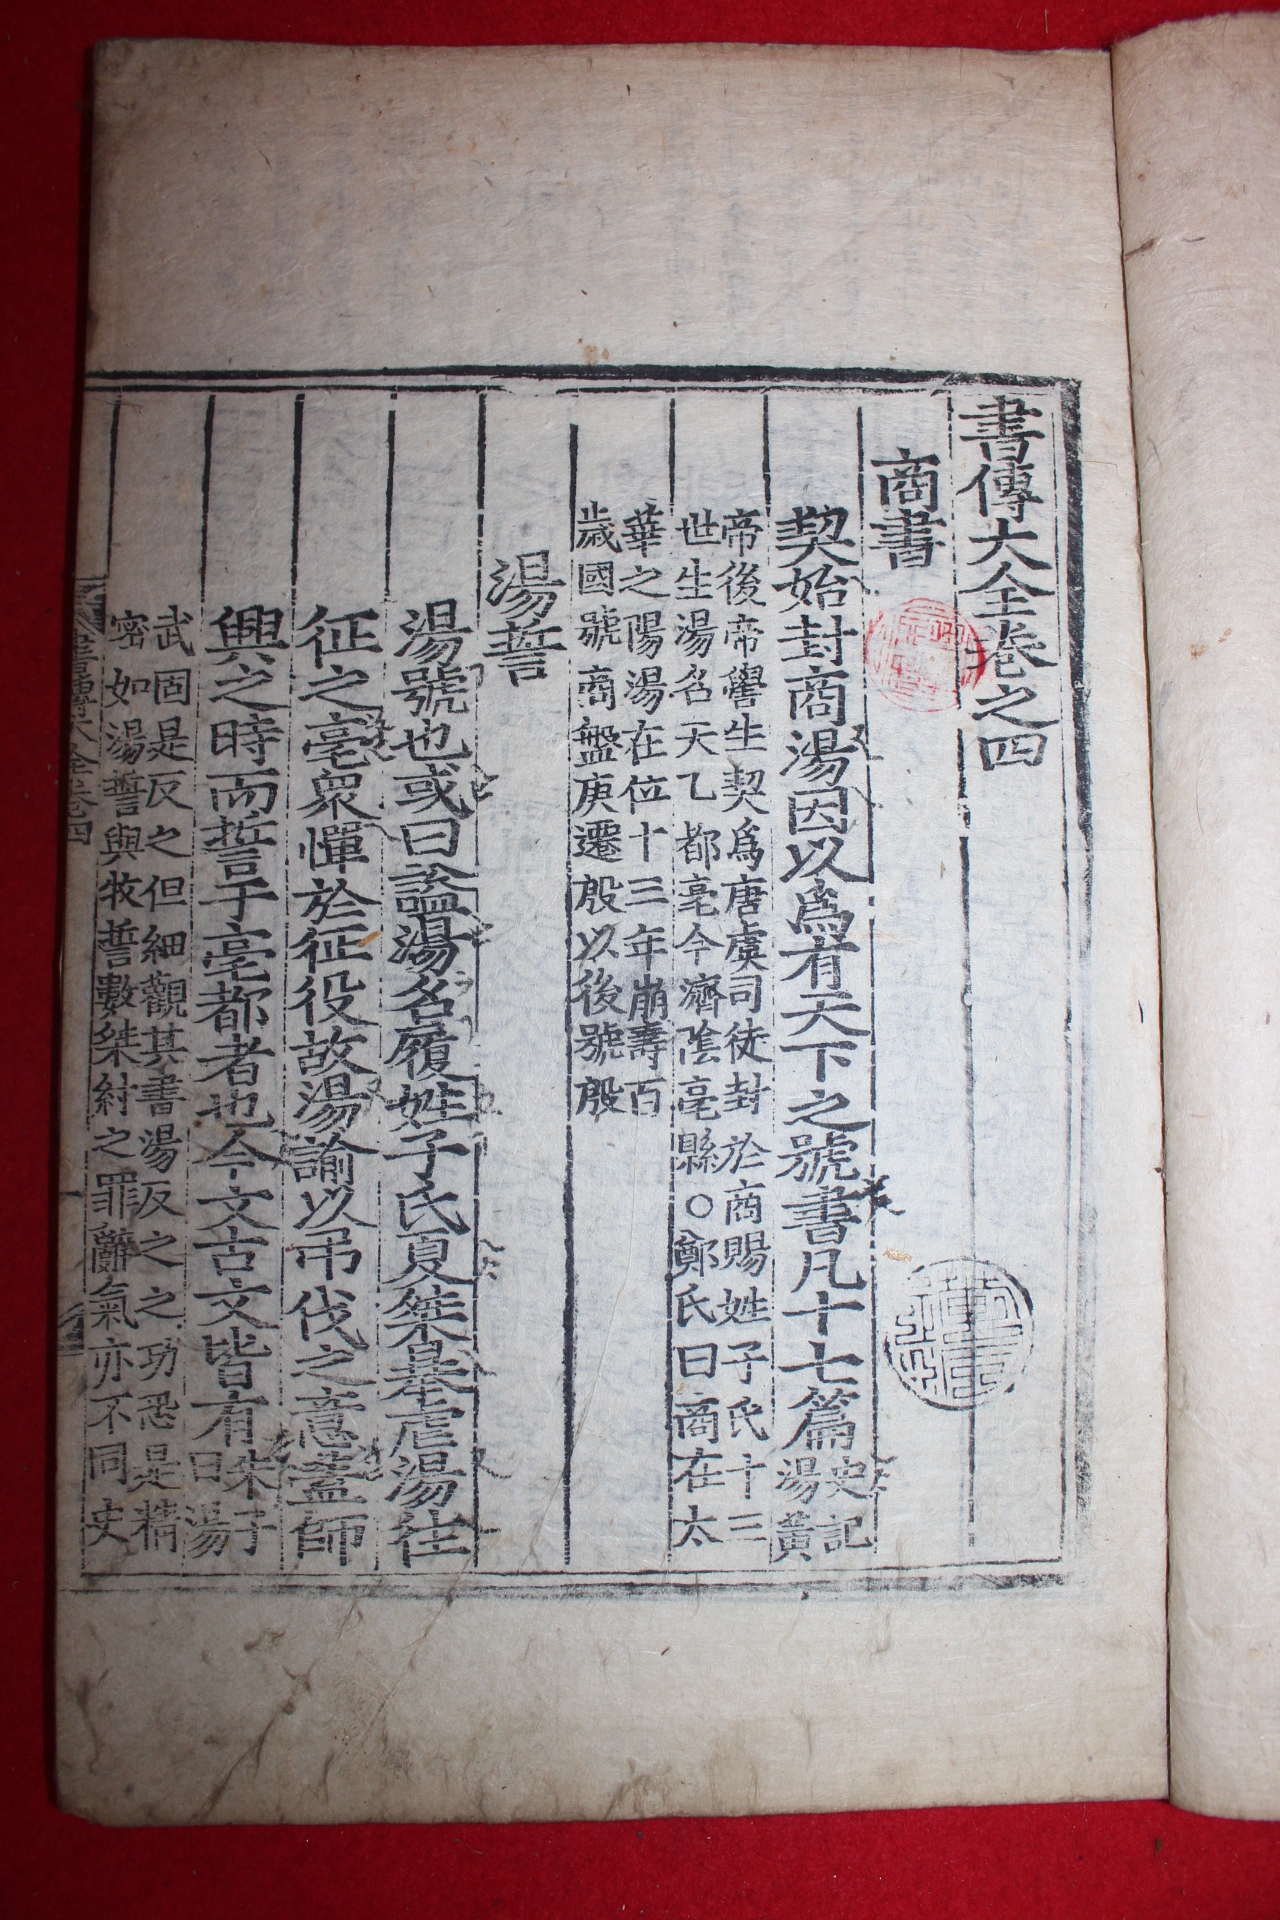 書傳大全卷之四
商書
契始封商湯因以爲有天下之號書凡十七篇
史記
湯黃
帝後帝嚳生契爲唐虞司徒封於商賜姓子氏十三
世生湯名天乙都亳今濟陰亳縣○鄭氏曰商在太
華之陽湯在位十三年崩壽百
歲國號商盤庚遷殷以後號殷
湯誓
湯號也或曰謚湯名履姓子氏夏桀暴虐湯往
征之亳衆憚於征役故湯諭以弔伐之意蓋師
興之時而誓于亳都者也今文古文皆有
朱子
曰湯
武固是反之但細觀其書湯反之之功恐是精
密如湯誓與牧誓數桀紂之罪辭氣亦不同史
書傳大全卷四